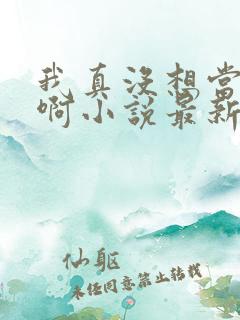 我真没想当
啊小说最新
仙躯
未经同意禁止转载